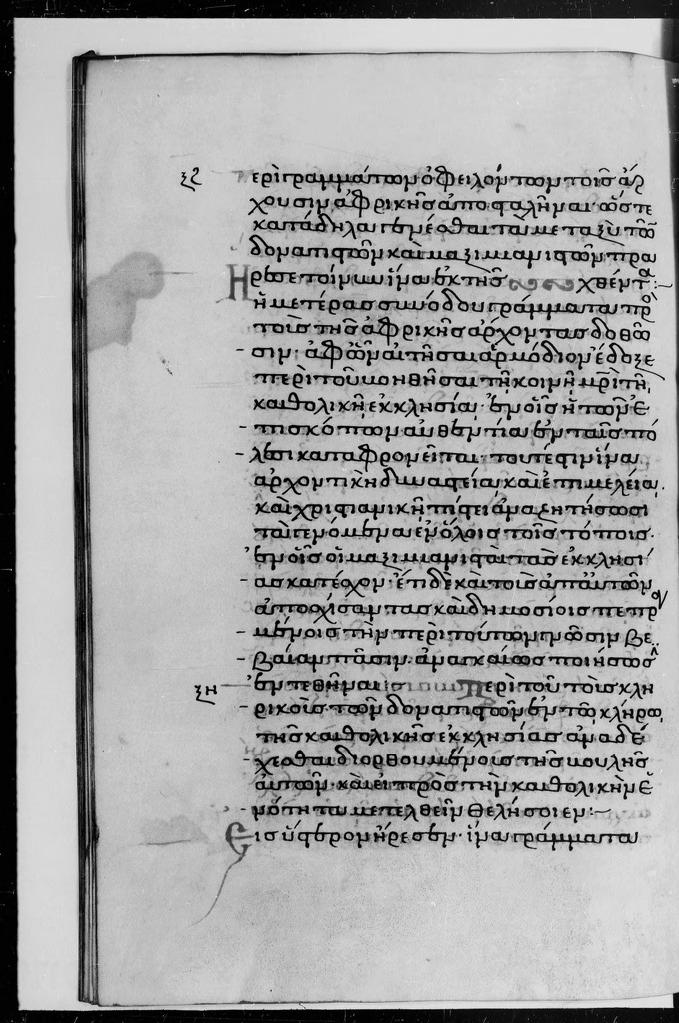 ξζ ερὶ γραμμάτων ὀφειλόντων τοῖς ἄρ
χουσιν ἀφρικῆς ἀποσταλῆναι ὥστε
κατάδηλα γενέσθαι τὰ μεταξὺ τῶ
δονατιστῶν καὶ μαξιμιανιστῶν πρα
Ηρεσε τοίνυν ἵνα ἐκ τῆς χθέντα:
ἡμετέρας συνόδου γράμματα πρὸ
τοῖς τῆς ἀφρικῆς ἄρχοντας δοθῶ
σιν· ἀφῶν αἰτῆσαι ἁρμόδιον ἔδοξε
περὶ τοῦ βοηθῆσαι τὴν κοινὴν μρὶ τὴν
καθολικὴν ἐκκλησίαν· ἐν οἷς ἡ τῶν ἐ
πισκόπων αὐθεντία ἐν ταῖς πό
λεσι καταφρονεῖται· τουτέστιν ἵνα
ἀρχοντικῆ δυναστεία, καὶ ἐπιμελεία,
καὶ χριστιανικῆ πίστει ἀναζητήσωσι
τὰ γενόμενα ἐν ὅλοις τοῖς τόποις·
ἐν οἷς οἱ μαξιμιανισταὶ τὰς ἐκκλησί
ας κατέσχον· ἔτι δὲ καὶ τοῖς ἀπ αὐτῶν
ἀποσχίσαντας καὶ δημοσίοις πεπρ
μένοις τὴν περὶ τούτων γνῶσιν βε
βαίαν πᾶσιν. ἀναγκαίως ποιήσωσ
ξη ἐντεθῆναι Περὶ τοῦ τοῖς κλη
ρικοῖς τῶν δονατιστῶν ἐν τῶ κλήρω,
τῆς καθολικῆς ἐκκλησίας ἀναδέ
χεσθαι διορθουμένοις τῆς βουλῆς
αὐτῶν· καὶ εἰ πρὸς τὴν καθολικὴν ἑ
νότητα μετελθεῖν θελήσοιεν:
Εἰσύστερον ἤρεσεν· ἵνα γράμματα